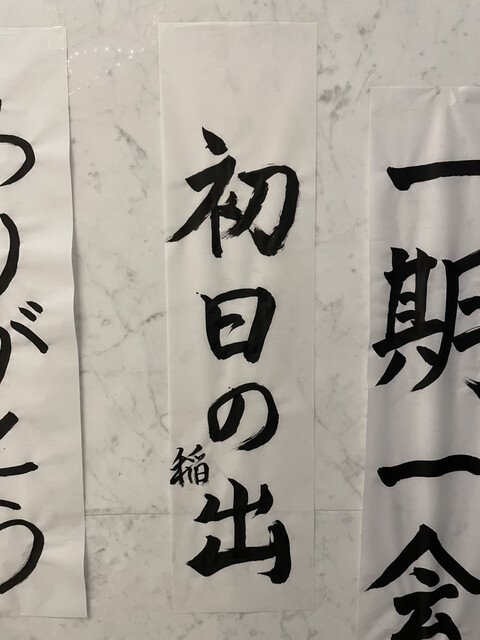 一期一会
初日の出
稲
ありがとう